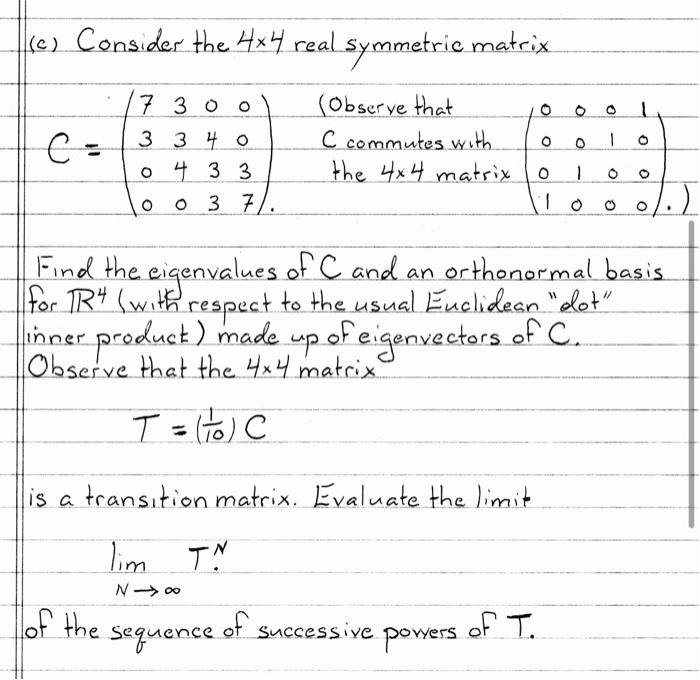 (c) Consider the 4×4 real symmetric matrix
C = ( 7 3 0 0 (Observe that 0 0 0 1
3 3 4 0 C commutes with 0 0 1 0
0 4 3 3 the 4×4 matrix 0 1 0 0
0 0 3 7 ). 1 0 0 0 ).)
Find the eigenvalues of C and an orthonormal basis
for ℝ⁴ (with respect to the usual Euclidean "dot"
inner product) made up of eigenvectors of C.
Observe that the 4×4 matrix
T = (1/10) C
is a transition matrix. Evaluate the limit
lim T^N.
N → ∞
of the sequence of successive powers of T.